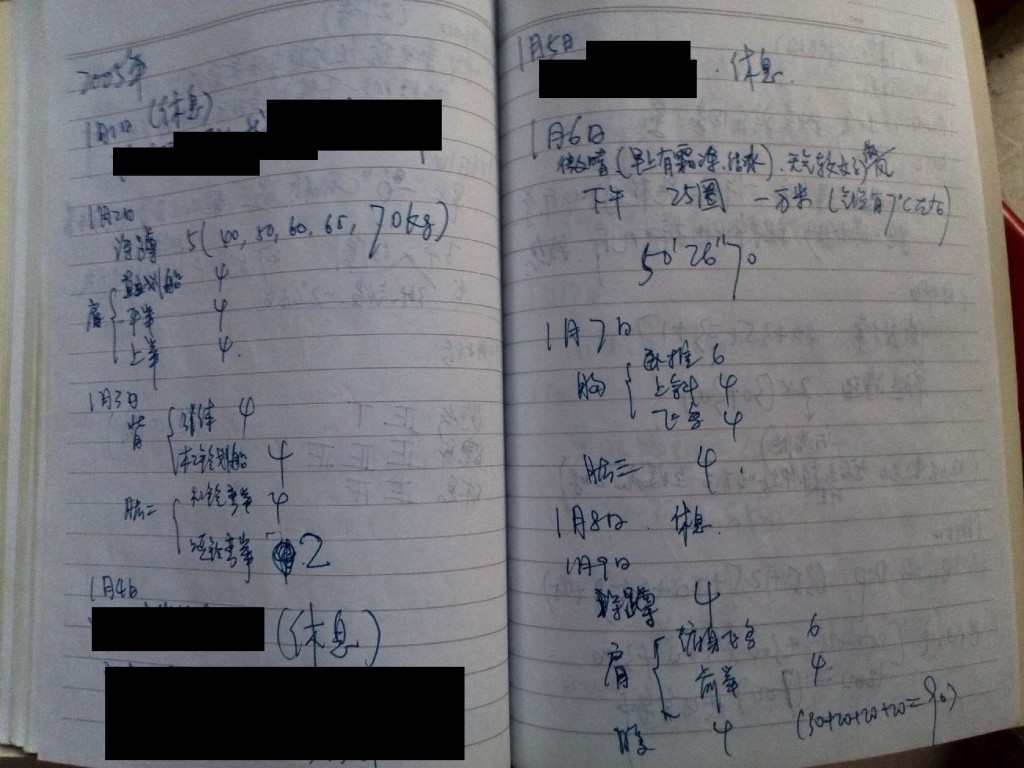 2005年
1月1日 (休息)
1月2日
深蹲 5( 40, 50, 60, 65, 70kg)
划船 4
肩 平举 4
上举 4.
1月3日
背 引体 4
杠铃划船 4
肱二 杠铃弯举 4
弯举 2
1月4日
(休息)
1月5日
. 休息.
1月6日
微晴 (早上有霜冻.结冰). 天气较好
下午 25圈 一万米 (气温有7℃左右)
50'26"70
1月7日
胸 卧推 6
上斜 4
飞鸟 4
肱三 4
1月8日. 休息.
1月9日
蹲 4
肩 俯身飞鸟 6
前举 4
腹 4 (30+20+20+20=90)